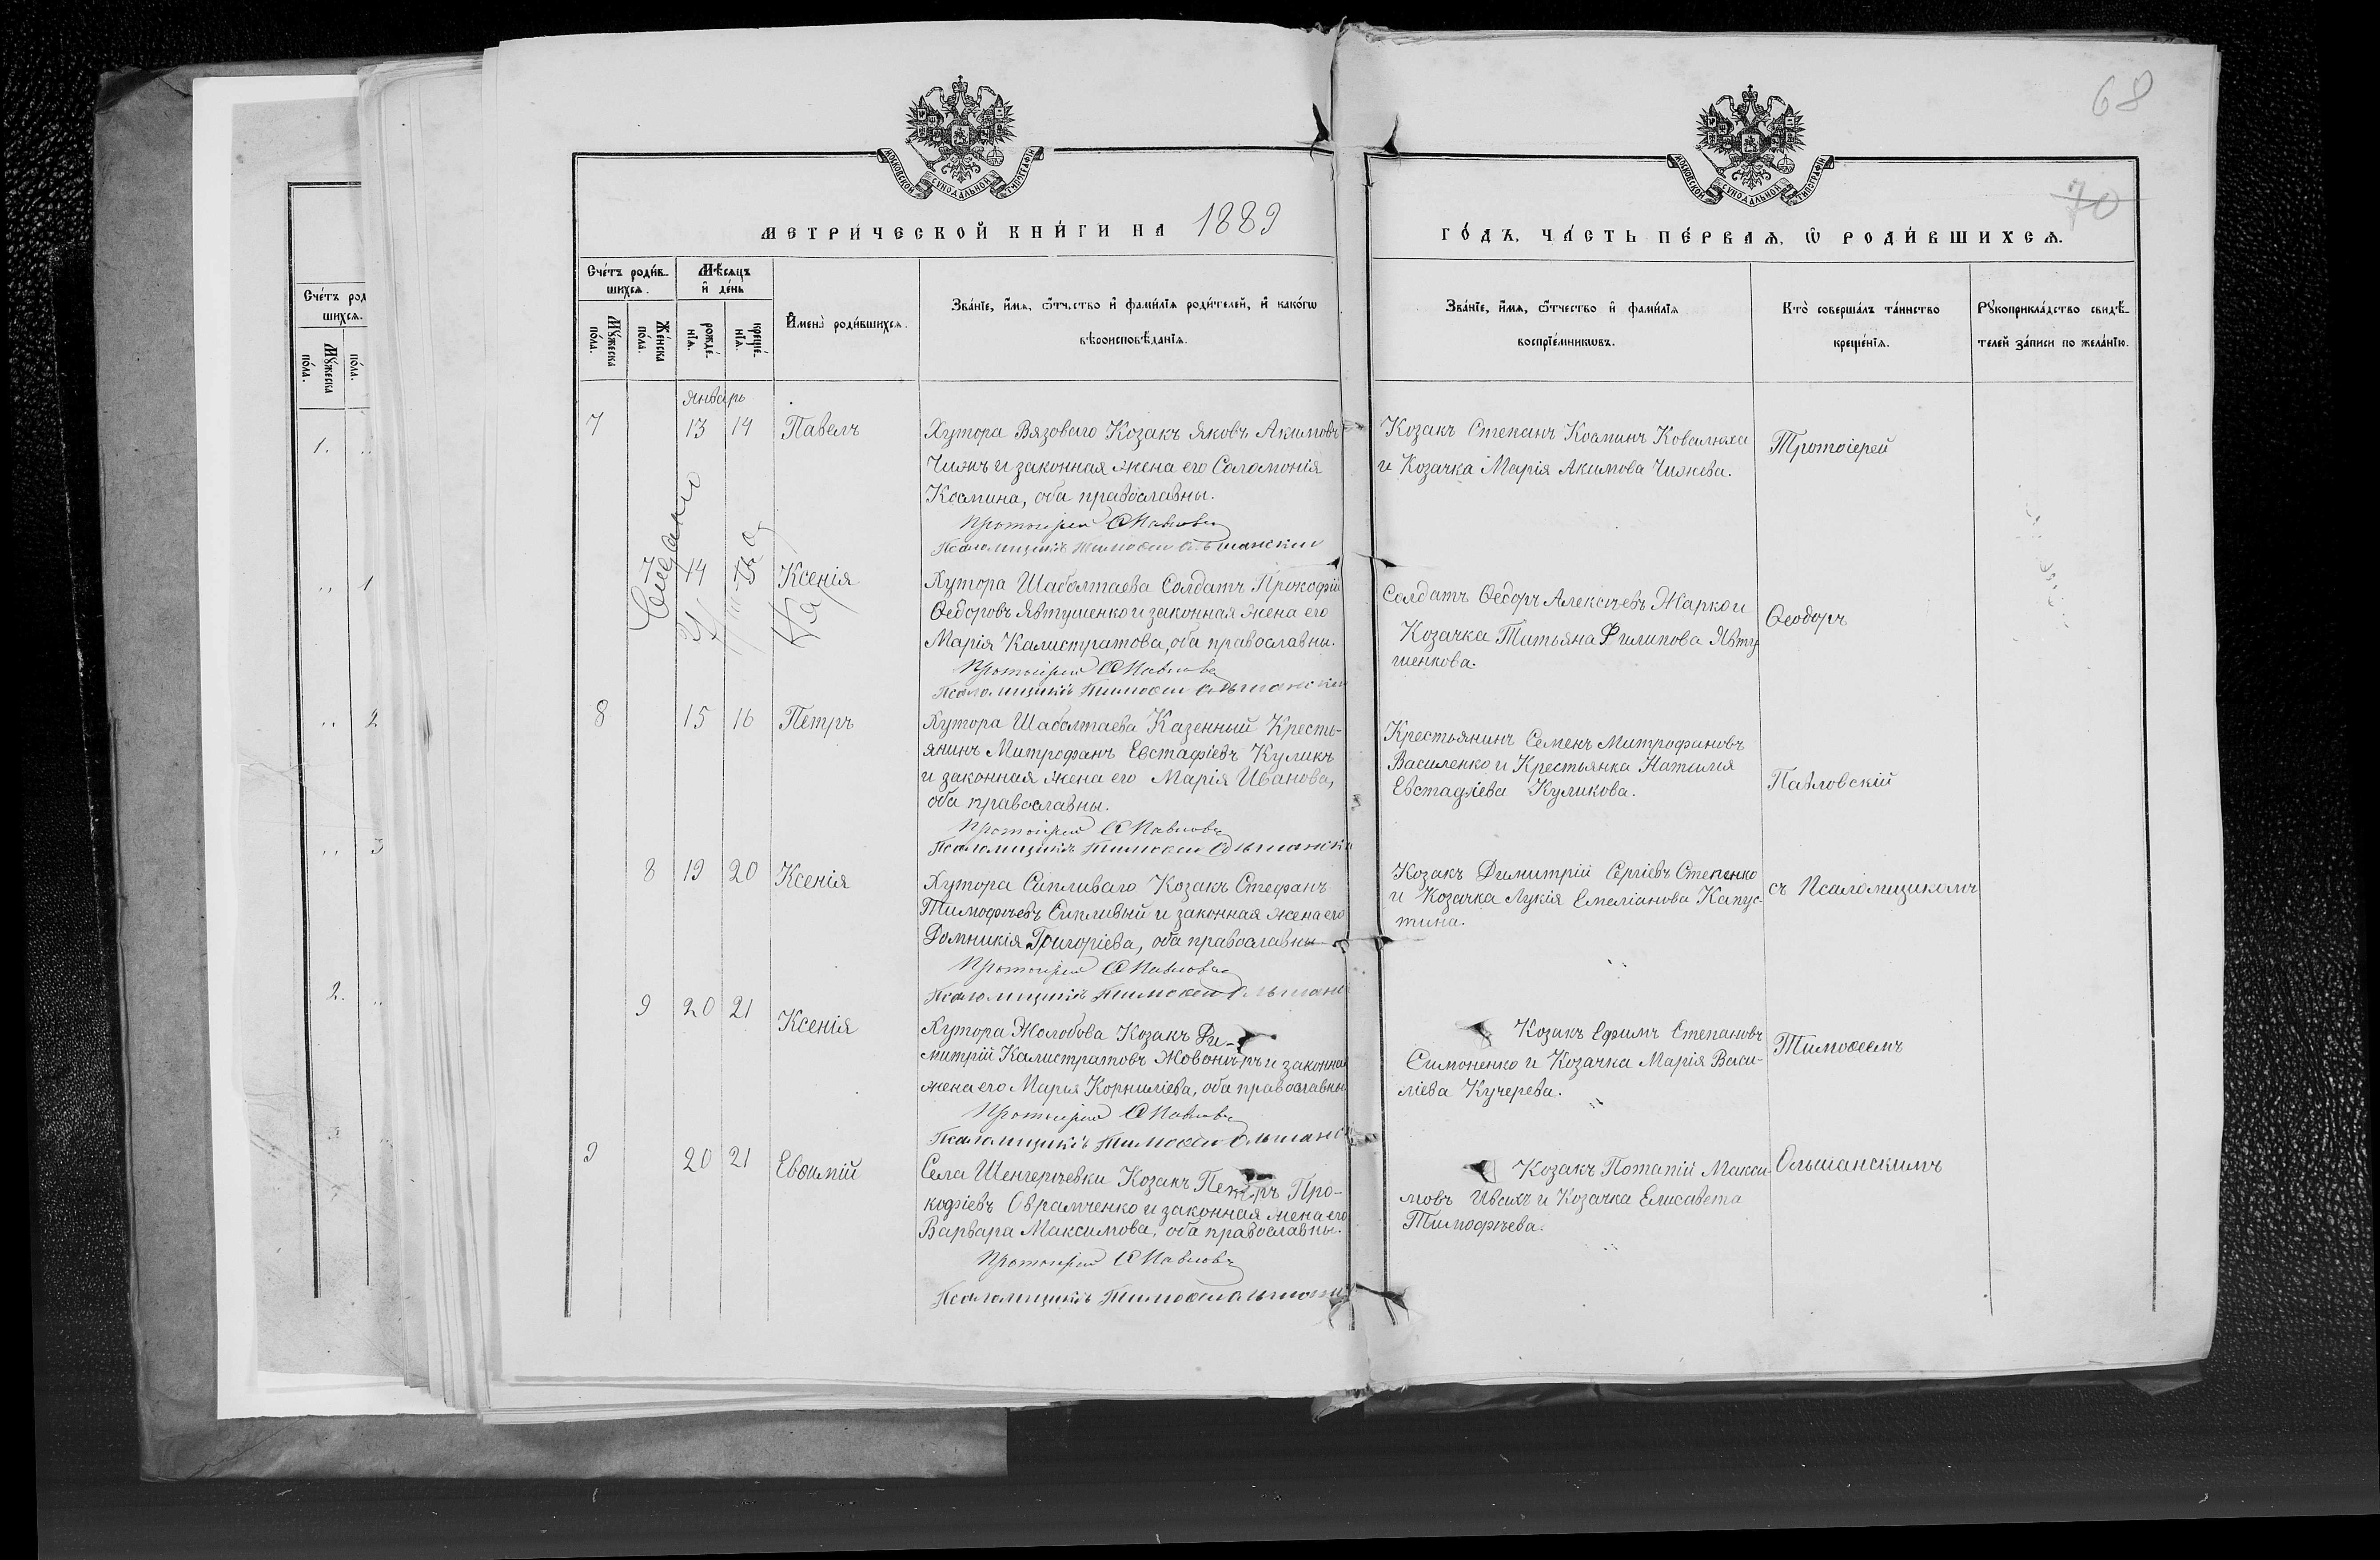 68
70
МОСКОВСКОЙ СѴНОДАЛЬНОЙ ТИПОГРАФІИ
МОСКОВСКОЙ СѴНОДАЛЬНОЙ ТИПОГРАФІИ
МЕТРИ́ЧЕСКОЙ КНИ́ГИ НА 1889
ГО́ДЪ, ЧА́СТЬ ПЕ́РВАѦ, Ѡ҆ РОДИ́ВШИХСѦ.
Сче́тъ род
шихсѧ.
Мꙋ́жеска
по́ла.
по́ла.
1. ..
.. 1
.. 2
.. 3
2. ..
Сче́тъ роди́в-
шихсѧ.
Мꙋ́жеска
по́ла.
Же́нска
по́ла.
Мѣ́сѧцъ
и҆ де́нь
рожде́-
нїѧ.
креще́-
нїѧ.
И҆мена̀ роди́вшихсѧ.
Зва́нїе, и҆́мѧ, ѻ҆́тчество и҆ фами́лїѧ роди́телей, и҆ како́гѡ
вѣроисповѣ́данїѧ.
Зва́нїе, и҆́мѧ, ѻ҆́тчество и҆ фами́лїѧ
воспрїе́мникѡвъ.
Кто̀ соверша́лъ та́инство
креще́нїѧ.
Рꙋкоприкла́дство свидѣ́-
телей за́писи по жела́нїю.
Январь
7 13 14 Павелъ
Хутора Вязоваго Козакъ Яковъ Акимовъ
Чижъ и законная жена его Соломонія
Космина, оба православны.
Протоіерей Ѳ Павловс
Псаломщикъ Тимоѳей Ольшанскій
Козакъ Степанъ Косминъ Ковалюха
и Козачка Марія Акимова Чижева.
Протоіерей
7 14 15 Ксенія
Хутора Шаболтаева Солдатъ Прокофій
Ѳедоровъ Явтушенко и законная жена его
Марія Калистратова, оба православны.
Протоіерей Ѳ Павловс
Псаломщикъ Тимоѳей Ольшанскій
Солдатъ Ѳедоръ Алексѣевъ Жарко и
Козачка Татьяна Филипова Явту
шенкова.
Ѳеодоръ
8 15 16 Петръ
Хутора Шаболтаева Казенный Кресть-
янинъ Митрофанъ Евстафіевъ Куликъ
и законная жена его Марія Иванова,
оба православны.
Протоіерей Ѳ Павловс
Псаломщикъ Тимоѳей Ольшанск
Крестьянинъ Семенъ Митрофановъ
Василенко и Крестьянка Наталія
Евстафіева Куликова.
Павловскій
8 19 20 Ксенія
Хутора Сипливаго Козакъ Стефанъ
Тимофѣевъ Сипливый и законная жена его
Домникія Григоріева, оба православны
Протоіерей Ѳ Павловс
Псаломщикъ Тимоѳей Ольшан
Козакъ Димитрій Сергіевъ Степенко
и Козачка Лукія Емеліанова Капус-
тина.
съ Псаломщикомъ
9 20 21 Ксенія
Хутора Жолобова Козакъ Ди-
митрій Калистратовъ и законная
жена его Марья Корниліева, оба православны
Протоіерей Ѳ Павловс
Псаломщикъ Тимоѳей Ольшанс
Козакъ Ефимъ Степановъ
Симоненко и Козачка Марія Васи-
ліева Кучерева.
Тимоѳеемъ
9 20 21 Евѳимій
Села Шенгерѣевки Козакъ Петръ Про-
кофіевъ Овраменко и законная жена его
Варвара Максимова, оба православны.
Протоіерей Ѳ Павловс
Псаломщикъ Тимоѳей Ольшан
Козакъ Потапій Макси-
мовъ и Козачка Елисавета
Тимофѣева.
Ольшанскимъ